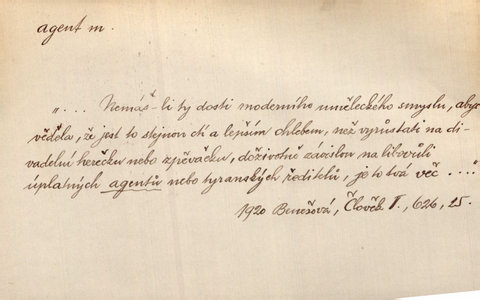 agent m.
„ . . . Nemáš-li ty dosti moderního uměleckého smyslu, abys
věděla, že jest to stejnou ctí a lepším chlebem, než vyrůstati na di-
vadelní herečku nebo zpěvačku, doživotně závislou na libovůli
úplatných agentů nebo tyranských ředitelů, je to tvá věc . . . ."
1920 Benešová, Člověk I., 626, 25.